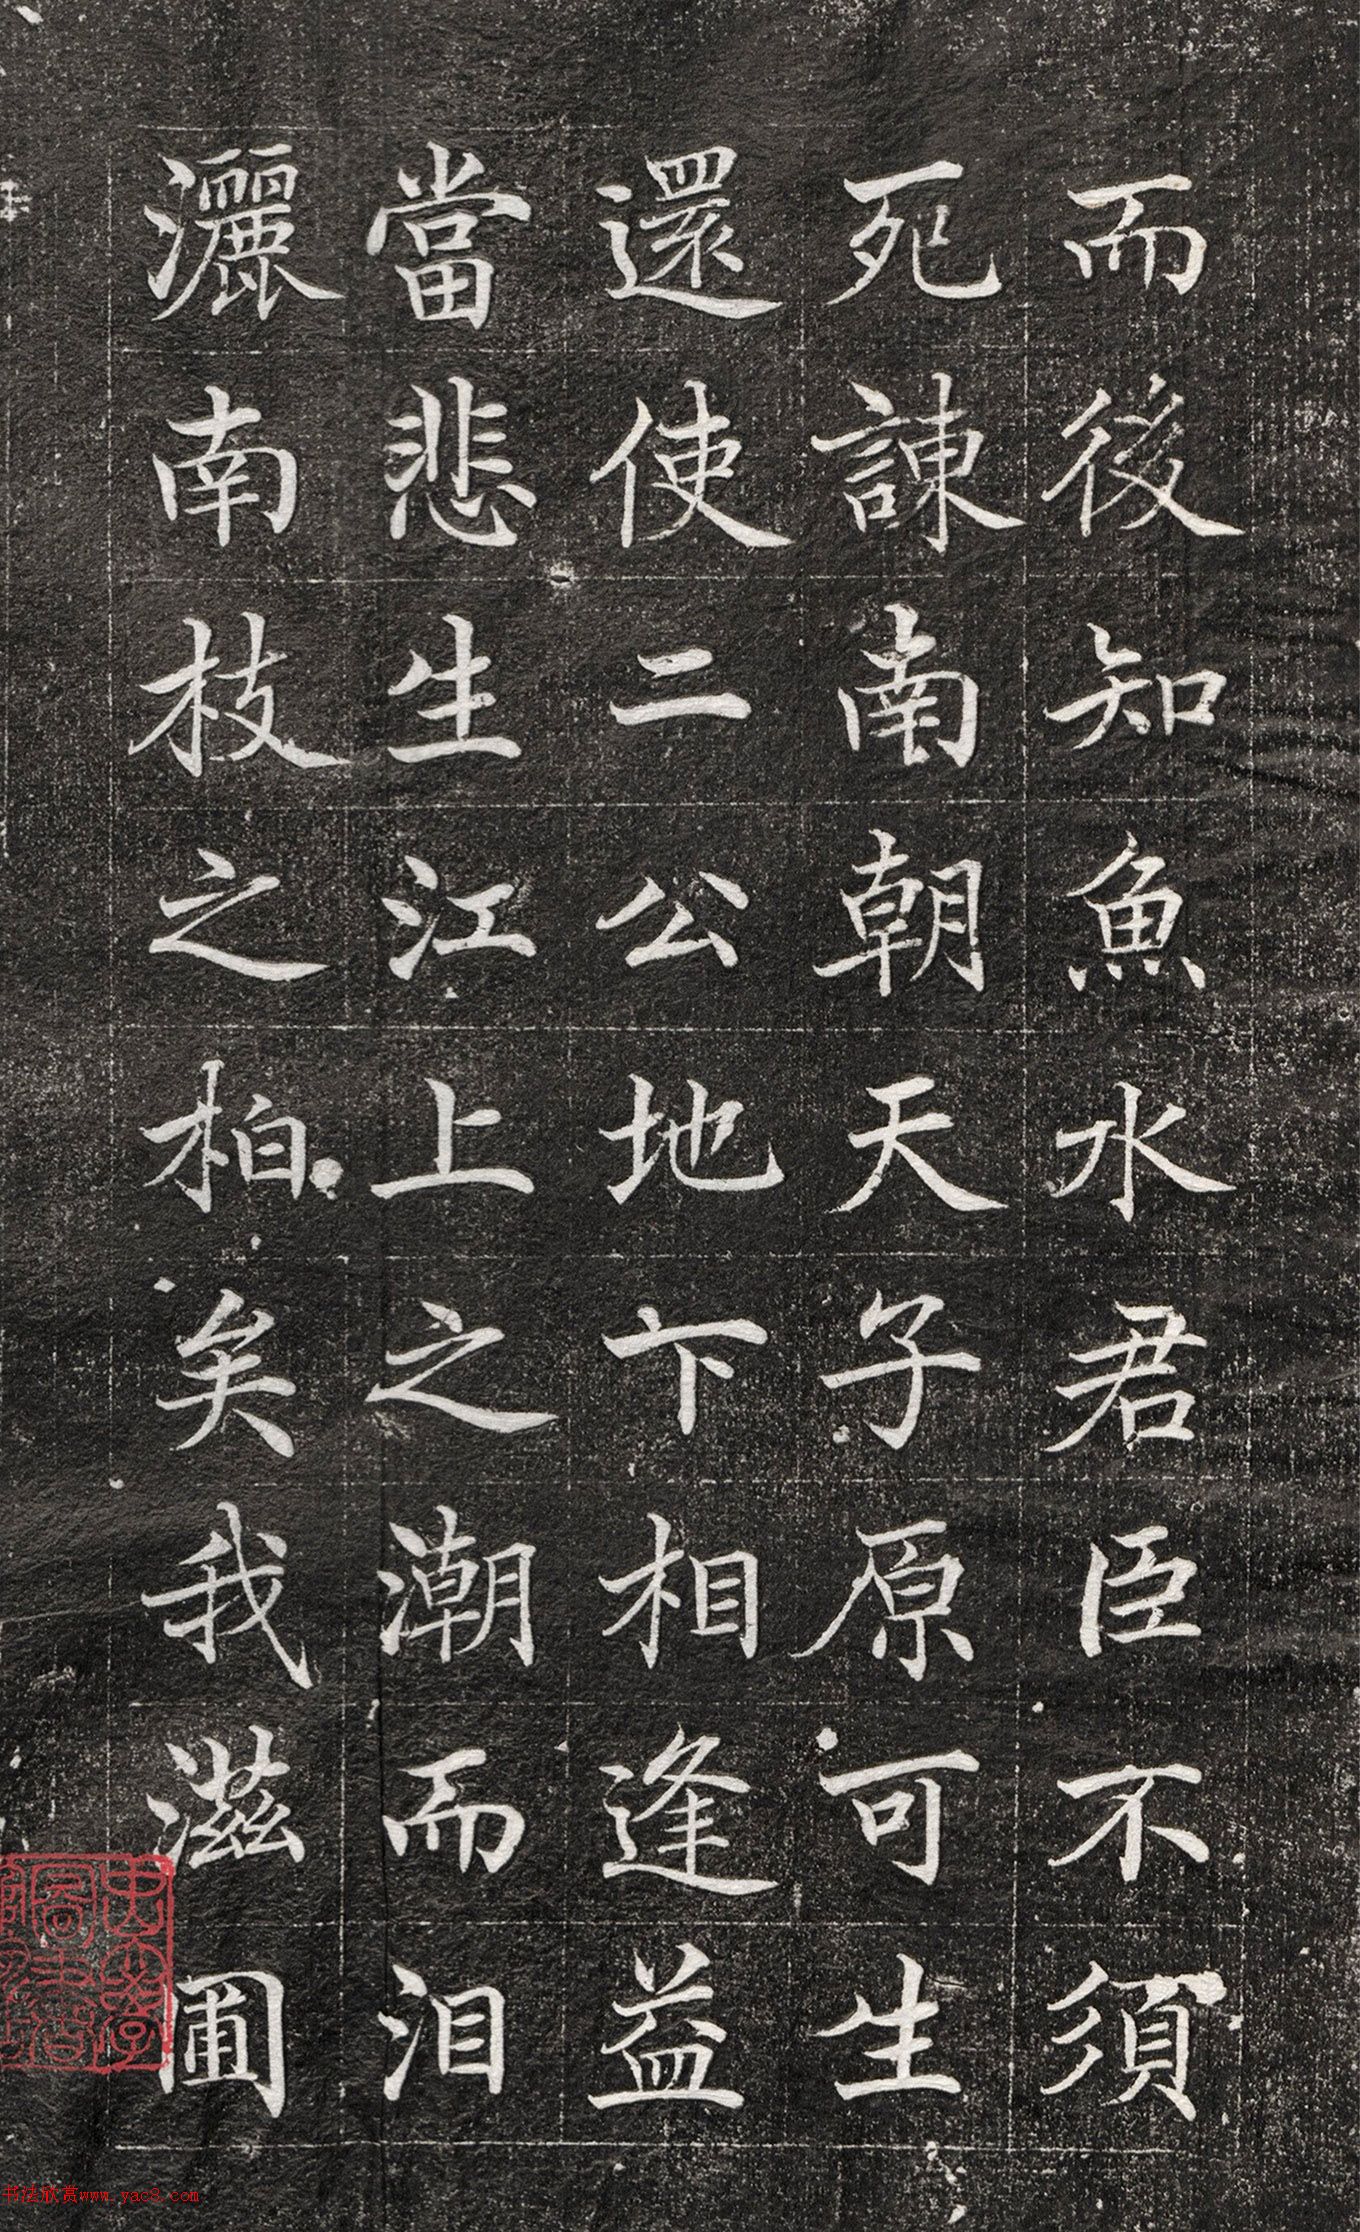 而後知魚水君臣不須
死諫南朝天子原可生
還使二公地下相逢益
當悲生江上之潮而泪
灑南枝之柏矣我滋圃
书法欣赏www.yac8.com